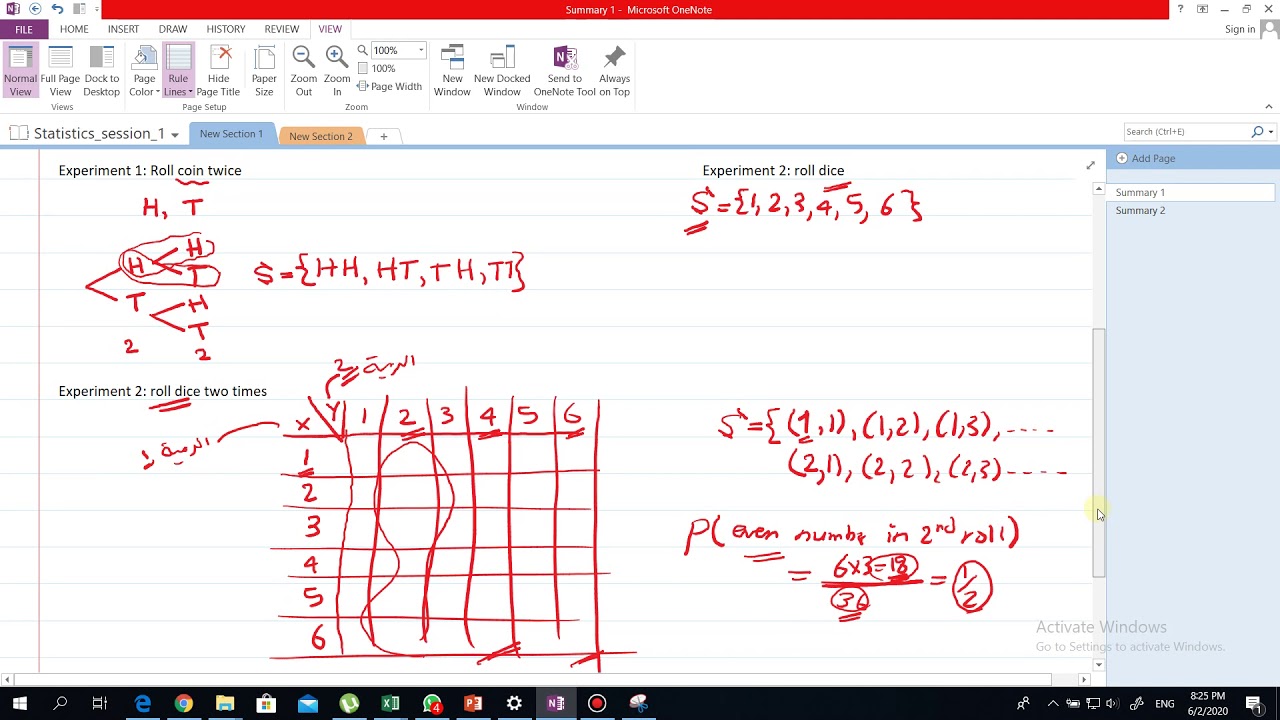 Summary 1 - Microsoft OneNote
FILE HOME INSERT DRAW HISTORY REVIEW VIEW
Sign in
Normal View
Full Page View
Dock to Desktop
Page Color
Rule Lines
Hide Page Title
Paper Size
Zoom Out
Zoom In
100%
100%
Page Width
New Window
New Docked Window
Send to OneNote Tool
Always on Top
Views Page Setup Zoom Window
Statistics_session_1
New Section 1
New Section 2
+
Search (Ctrl+E)
Add Page
Summary 1
Summary 2
Experiment 1: Roll coin twice
H, T
H
H
T
T
H
T
2 2
S = {HH, HT, TH, TT}
Experiment 2: roll dice
S = {1, 2, 3, 4, 5, 6}
Experiment 2: roll dice two times
الرمية 2
الرمية 1
X Y 1 2 3 4 5 6
1
2
3
4
5
6
S = { (1,1), (1,2), (1,3), ....
(2,1), (2,2), (2,3) .....
P( even numbe in 2nd roll)
= 6x3=18 / 36 = 1/2
Activate Windows
Go to Settings to activate Windows.
4
ENG
8:25 PM
6/2/2020
1